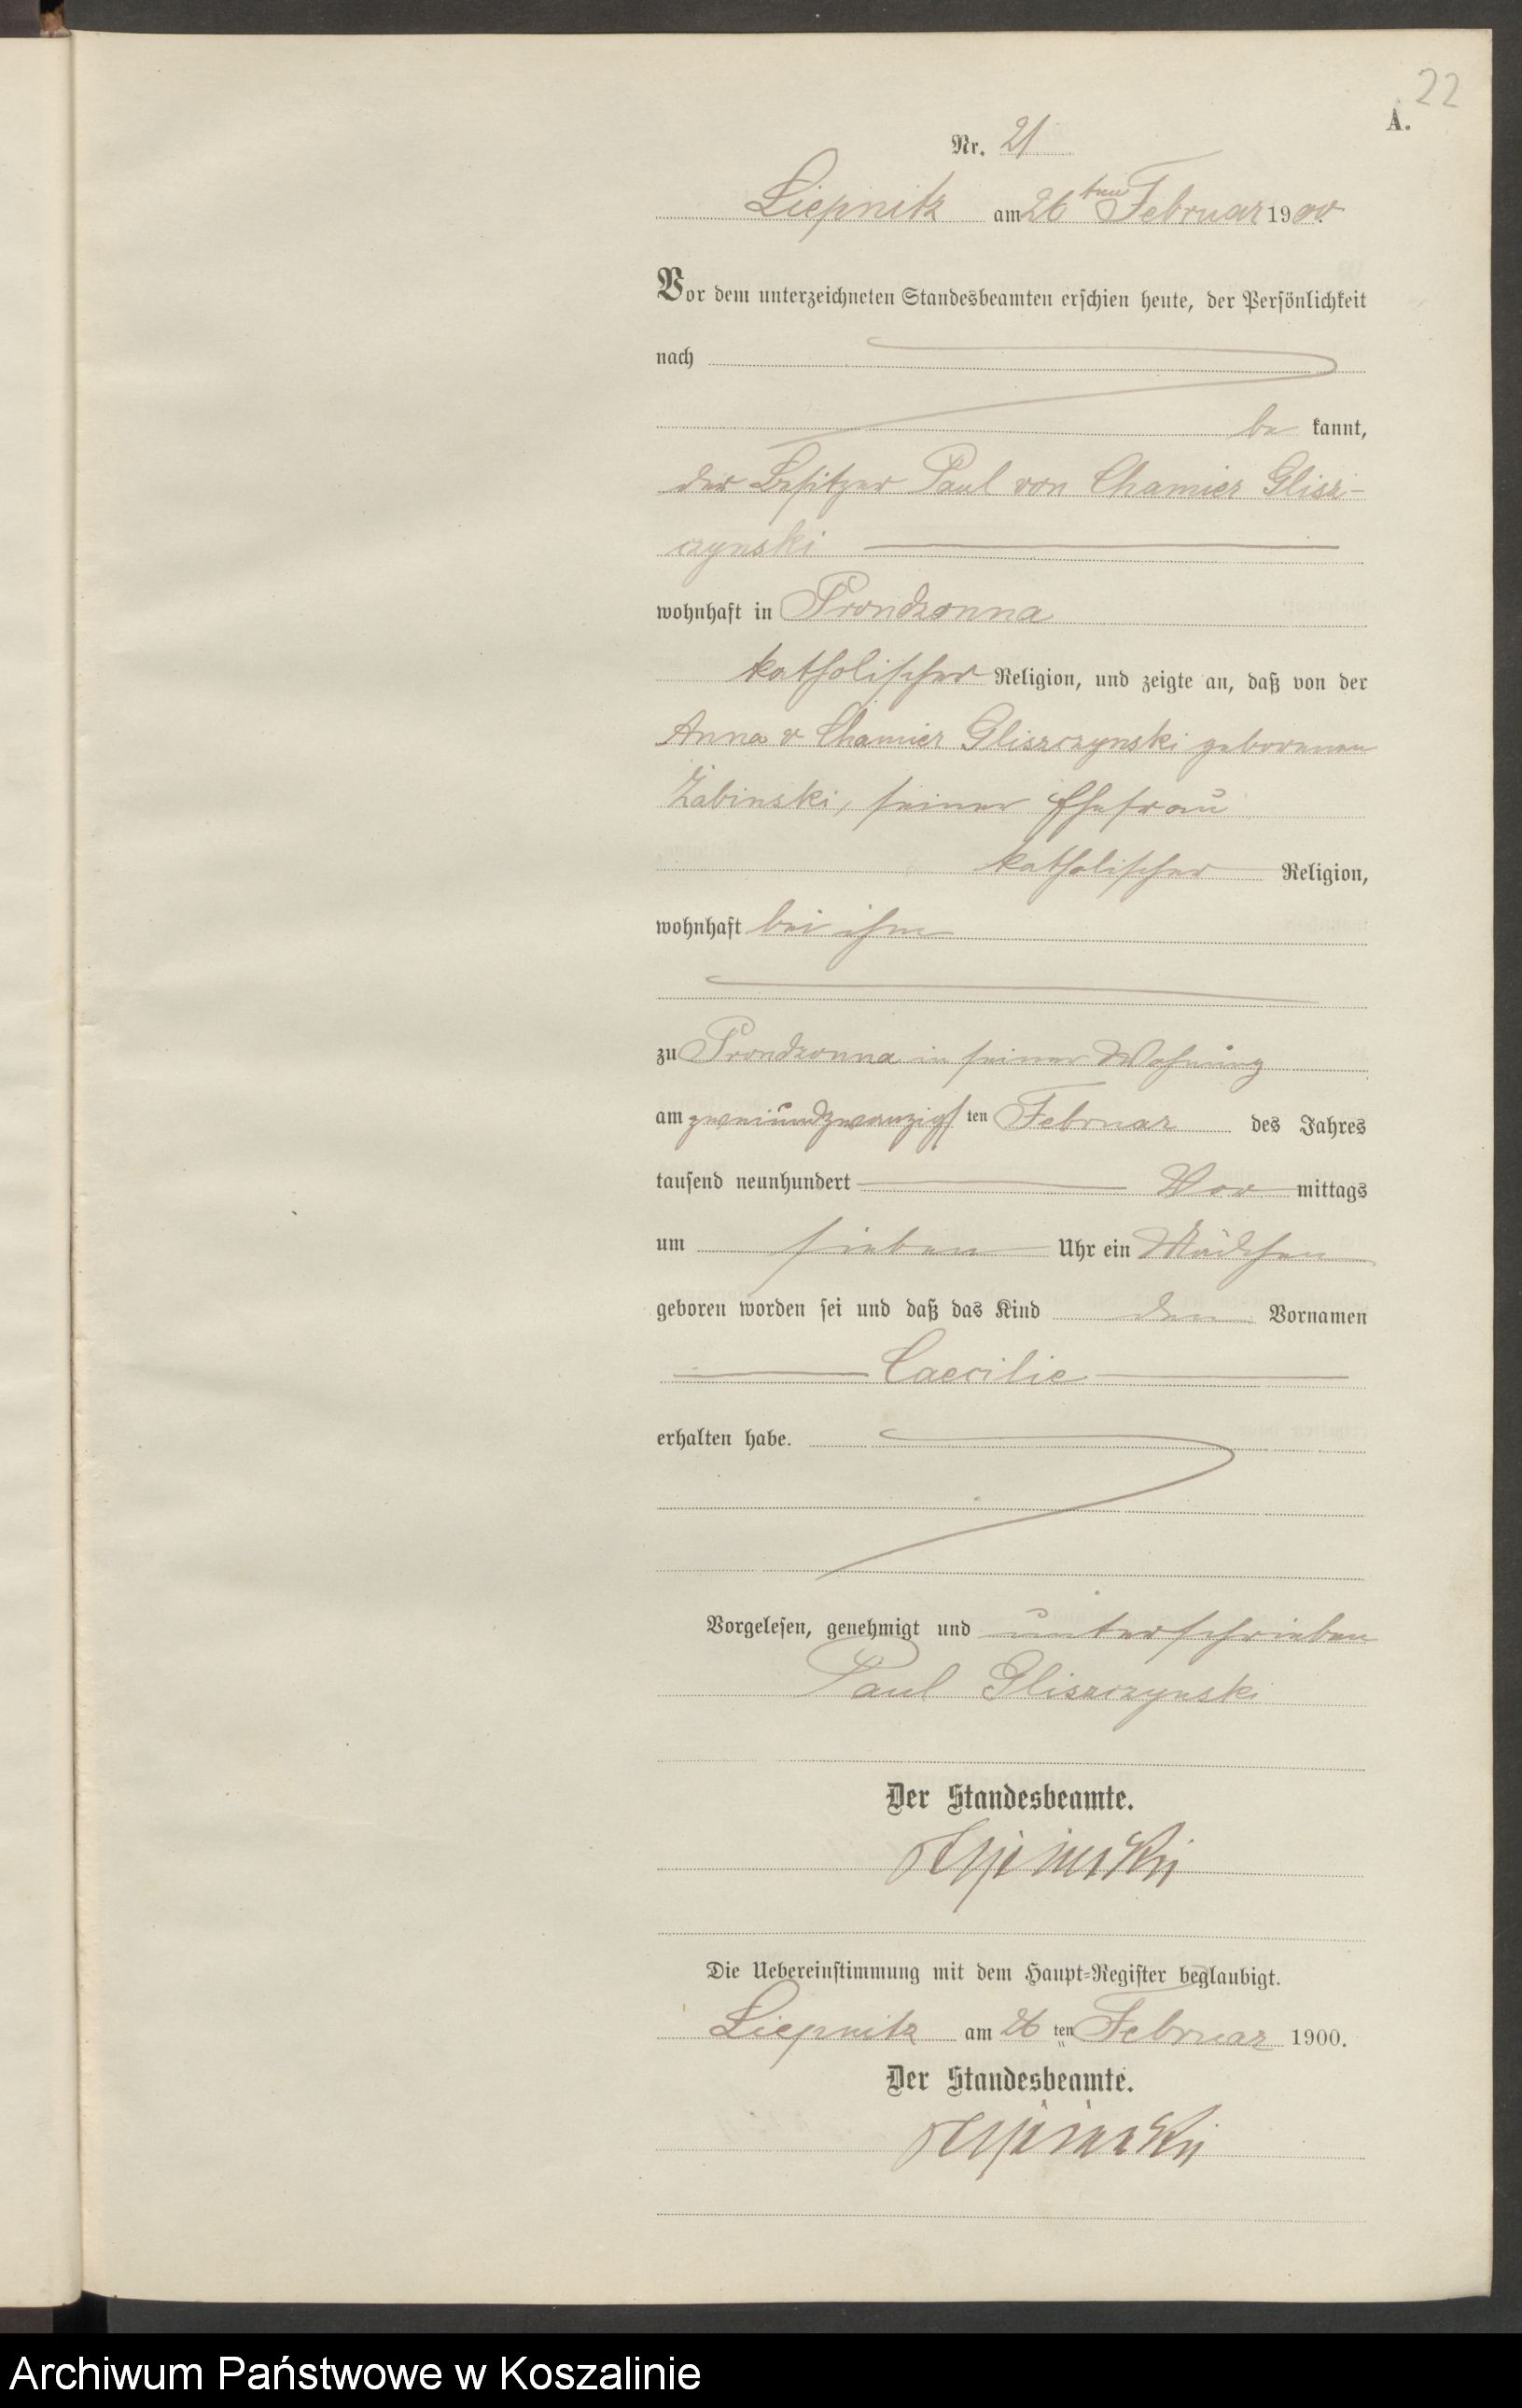 22
A.
Nr. 21
Liepnitz am 26ten Februar 1900.
Vor dem unterzeichneten Standesbeamten erschien heute, der Persönlichkeit
nach
be kannt,
der Besitzer Paul von Chamier Glisz-
czynski
wohnhaft in Prondzonna
katholischer Religion, und zeigte an, daß von der
Anna v Chamier Gliszczynski geborenen
Żabinski, seiner Ehefrau
katholischer Religion,
wohnhaft bei ihm
zu Prondzonna in seiner Wohnung
am zweiundzwanzigsten Februar des Jahres
tausend neunhundert Vor mittags
um sieben Uhr ein Mädchen
geboren worden sei und daß das Kind den Vornamen
Caecilie
erhalten habe.
Vorgelesen, genehmigt und unterschrieben
Paul Gliszczynski
Der Standesbeamte.
Die Uebereinstimmung mit dem Haupt=Register beglaubigt.
Liepnitz am 26 ten Februar 1900.
Der Standesbeamte.
Archiwum Państwowe w Koszalinie